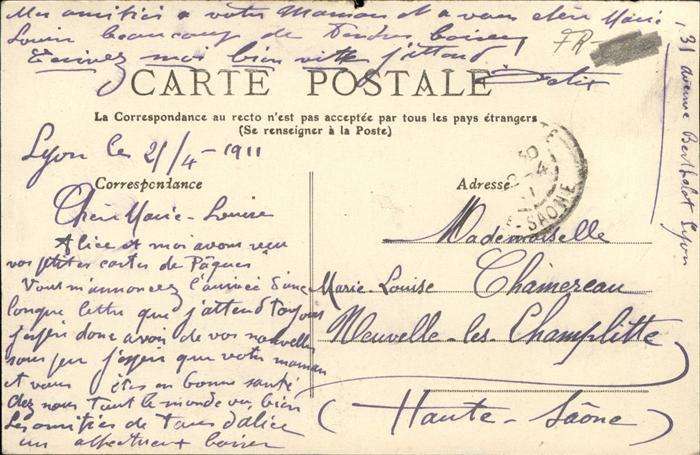 Mes amitiés à votre Maman et à vous chère Marie
Louise beaucoup de tendres baisers
Ecrivez moi bien vite j'attend
FR
31 avenue Berthelot Lyon
CARTE POSTALE
La Correspondance au recto n'est pas acceptée par tous les pays étrangers
(Se renseigner à la Poste)
Lyon le 21/4-1911
Correspondance
Adresse
SAONE
Chère Marie-Louise
Alice et moi avons reçu
vos petites cartes de Pâques
Vous m'annoncez l'arrivée d'une
longue lettre que j'attend toujours
J'espère donc avoir de vos nouvelles
sous peu j'espère que votre maman
et vous êtes en bonne santé
chez nous tout le monde va bien
Les amitiés de tous d'alice
un affectueux baiser
Mademoiselle
Marie-Louise Chamereau
Neuvelle-les-Champlitte
(Haute-Saône)